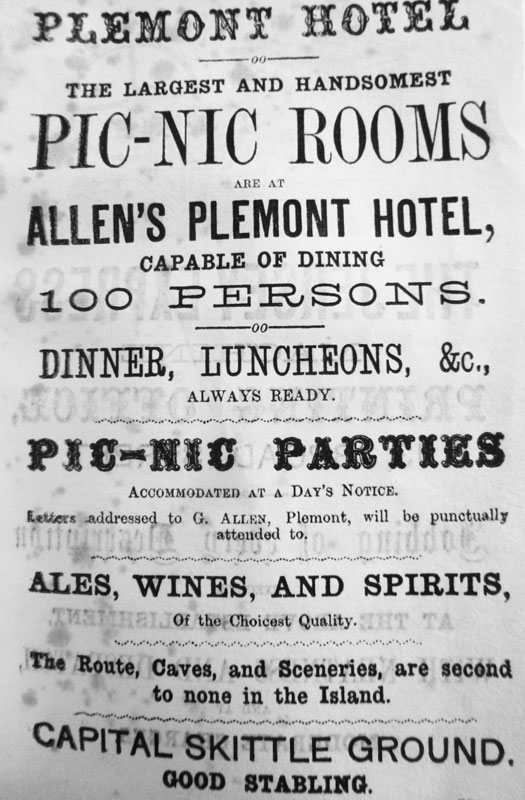 PLEMONT HOTEL
THE LARGEST AND HANDSOMEST
PIC-NIC ROOMS
ARE AT
ALLEN'S PLEMONT HOTEL,
CAPABLE OF DINING
100 PERSONS.
DINNER, LUNCHEONS, &c.,
ALWAYS READY.
PIC-NIC PARTIES
ACCOMMODATED AT A DAY'S NOTICE.
Letters addressed to G. ALLEN, Plemont, will be punctually
attended to.
ALES, WINES, AND SPIRITS,
Of the Choicest Quality.
The Route, Caves, and Sceneries, are second
to none in the Island.
CAPITAL SKITTLE GROUND.
GOOD STABLING.